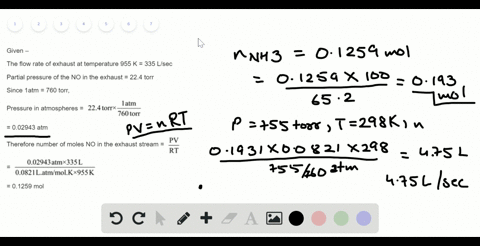 1 2 3 4 5 6 7
Given –
The flow rate of exhaust at temperature 955 K = 335 L/sec
Partial pressure of the NO in the exhaust = 22.4 torr
Since 1atm = 760 torr,
Pressure in atmospheres = 22.4 torr× 1atm / 760 torr
= 0.02943 atm
PV=nRT
Therefore number of moles NO in the exhaust stream = PV / RT
= 0.02943 atm×335L / 0.0821L.atm/mol.K×955K
= 0.1259 mol
nNH3 = 0.1259 mol
= 0.1259 × 100 / 65.2 = 0.193 mol
P = 755 torr, T = 298K, n
0.1931×0.0821×298 / 755/760 atm = 4.75 L
4.75 L/sec
A